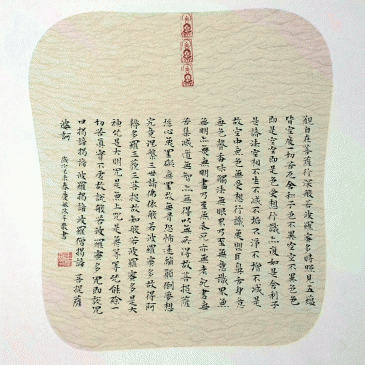 觀自在菩薩行深般若波羅蜜多時照見五蘊
皆空度一切苦厄舍利子色不異空空不異色色
即是空空即是色受想行識亦復如是舍利子
是諸法空相不生不滅不垢不淨不增不減是
故空中無色無受想行識無眼耳鼻舌身意
無色聲香味觸法無眼界乃至無意識界無
無明亦無無明盡乃至無老死亦無老死盡無
苦集滅道無智亦無得以無所得故菩提薩
心無罣礙無罣故無有恐怖遠離顛倒夢想
究竟涅槃三世諸佛依般若波羅蜜多故得阿
耨多羅三藐三菩提故知般若波羅蜜多是大
神咒是大明咒是無上咒是無等等咒能除一
切苦真實不虛故說般若波羅蜜多咒即說咒
曰揭諦揭諦波羅揭諦波羅僧揭諦菩提薩
婆訶